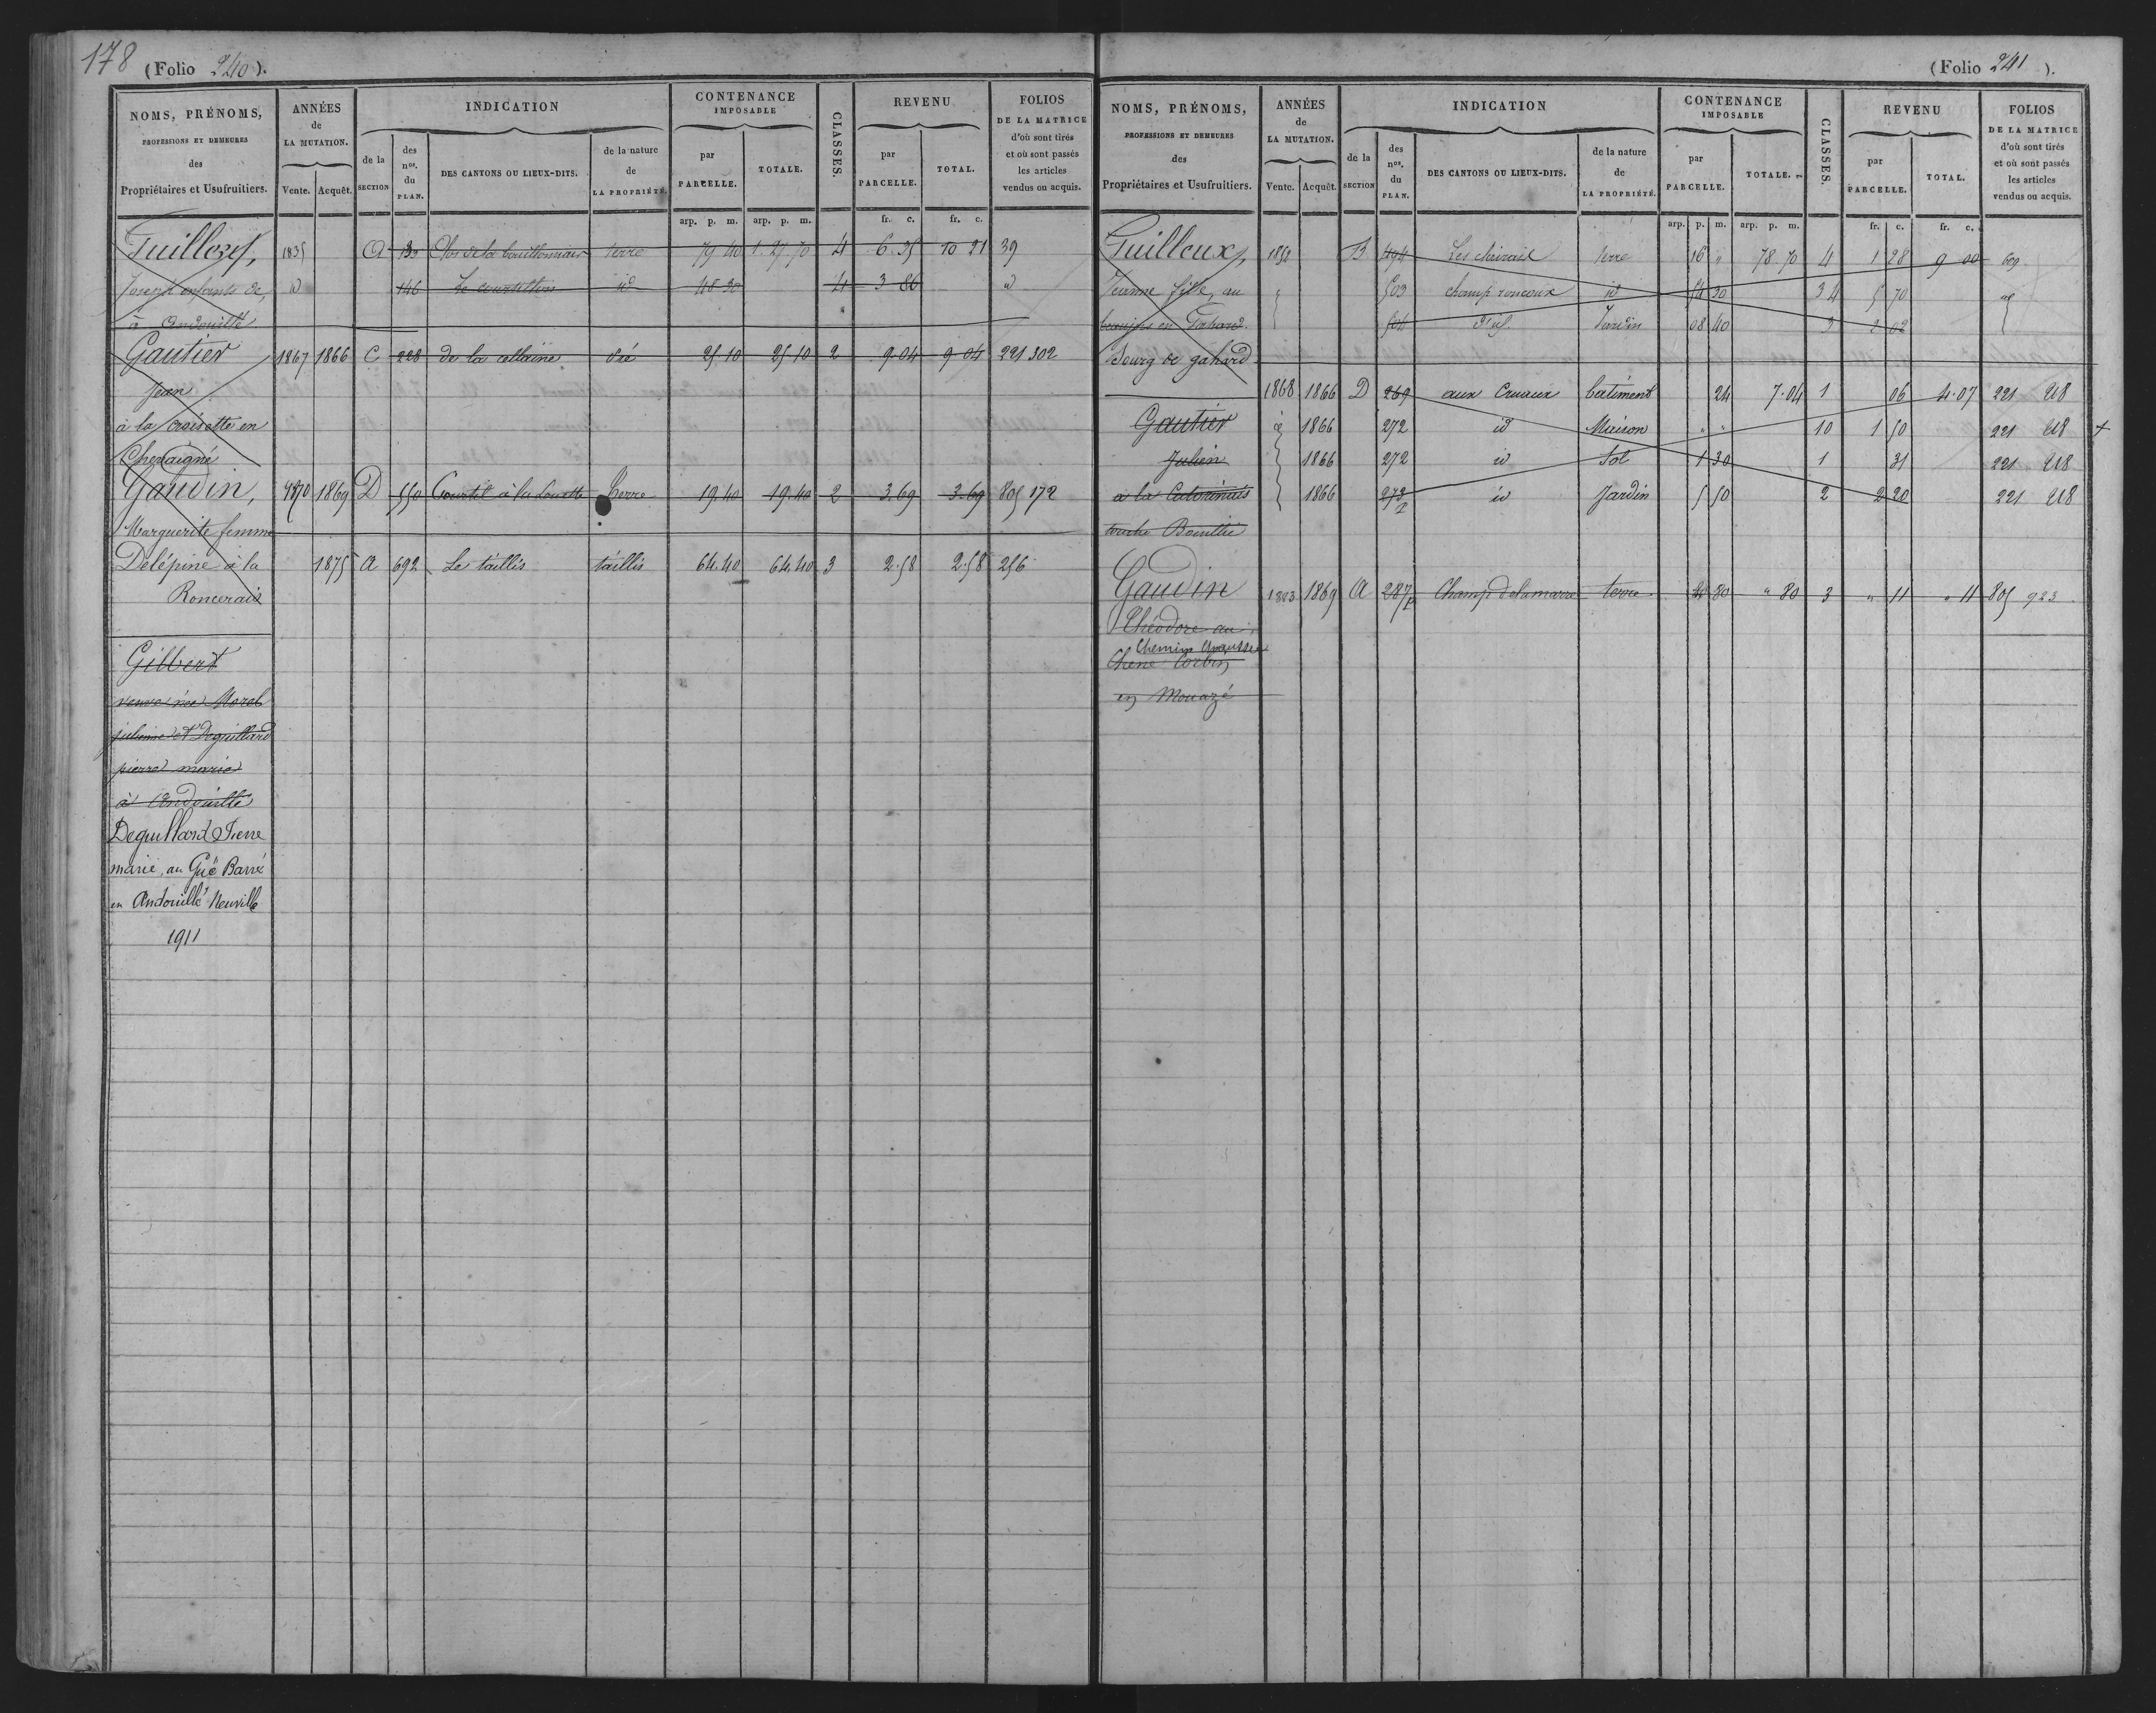 178 (Folio 240).
NOMS, PRÉNOMS, PROFESSIONS ET DEMEURES des Propriétaires et Usufruitiers.
ANNÉES de LA MUTATION. Vente. Acquêt.
INDICATION de la SECTION des nos. du PLAN. DES CANTONS OU LIEUX-DITS. de la nature de LA PROPRIÉTÉ.
CONTENANCE IMPOSABLE par PARCELLE. TOTALE.
CLASSES.
REVENU par PARCELLE. TOTAL.
FOLIOS DE LA MATRICE d'où sont tirés et où sont passés les articles vendus ou acquis.
arp. p. m. arp. p. m. fr. c. fr. c.
1835 A 133 Clos de la bouillonnais terre 79 40 1. 27. 70 4 6. 35 10 21 39
Joseph enfants de, id 146 Le courtillon id 48 30 4 3 86 id
à Andouillé
Gautier 1867 1866 C 228 de la cellaine Pré 25 10 25 10 2 9 04 9 04 221 302
Jean
à la croisette en
Chevaigné
Gaudin, 1870 1869 D 550 Courtil à la Louette Terre 19 40 19. 40 2 3. 69 3. 69 805 172
Marguerite femme
Delépine à la 1875 A 692 Le taillis taillis 64. 40 64. 40 3 2. 58 2. 58 256
Roncerais
Gilbert
veuve née Morel
julienne et Deguillard
pierre marie
à Andouillé
Deguillard Pierre
marie, au Gué Barré
en Andouillé Neuville
1911
(Folio 241 ).
NOMS, PRÉNOMS, PROFESSIONS ET DEMEURES des Propriétaires et Usufruitiers.
ANNÉES de LA MUTATION. Vente. Acquêt.
INDICATION de la SECTION des nos. du PLAN. DES CANTONS OU LIEUX-DITS. de la nature de LA PROPRIÉTÉ.
CONTENANCE IMPOSABLE par PARCELLE. TOTALE.
CLASSES.
REVENU par PARCELLE. TOTAL.
FOLIOS DE LA MATRICE d'où sont tirés et où sont passés les articles vendus ou acquis.
arp. p. m. arp. p. m. fr. c. fr. c.
Guilleux, B 494 Les terre 16 " 78 70 4 1 28 9 00 609
Jeanne fille, au 503 champ roncoux id 54 30 3 4 5 70
en Gahard. 504 Jardin 08 40 3 2 02
Bourg de gahard
1868 1866 D 269 aux Cruaux batiment 24 7. 04 1 06 4. 07 221 218
Gautier id 1866 272 id Maison " " 10 1 50 221 218 +
Julien 1866 272 id Sol 1 30 1 31 221 218
a la 1866 273 p id Jardin 5 50 2 2 20 221 218
touche
Gaudin 1883 1869 A 287 p Champ de la marre terre 80 " 80 3 " 11 " 11 805 923
Théodore au
Chemin
Chene Corbin
en Mouazé